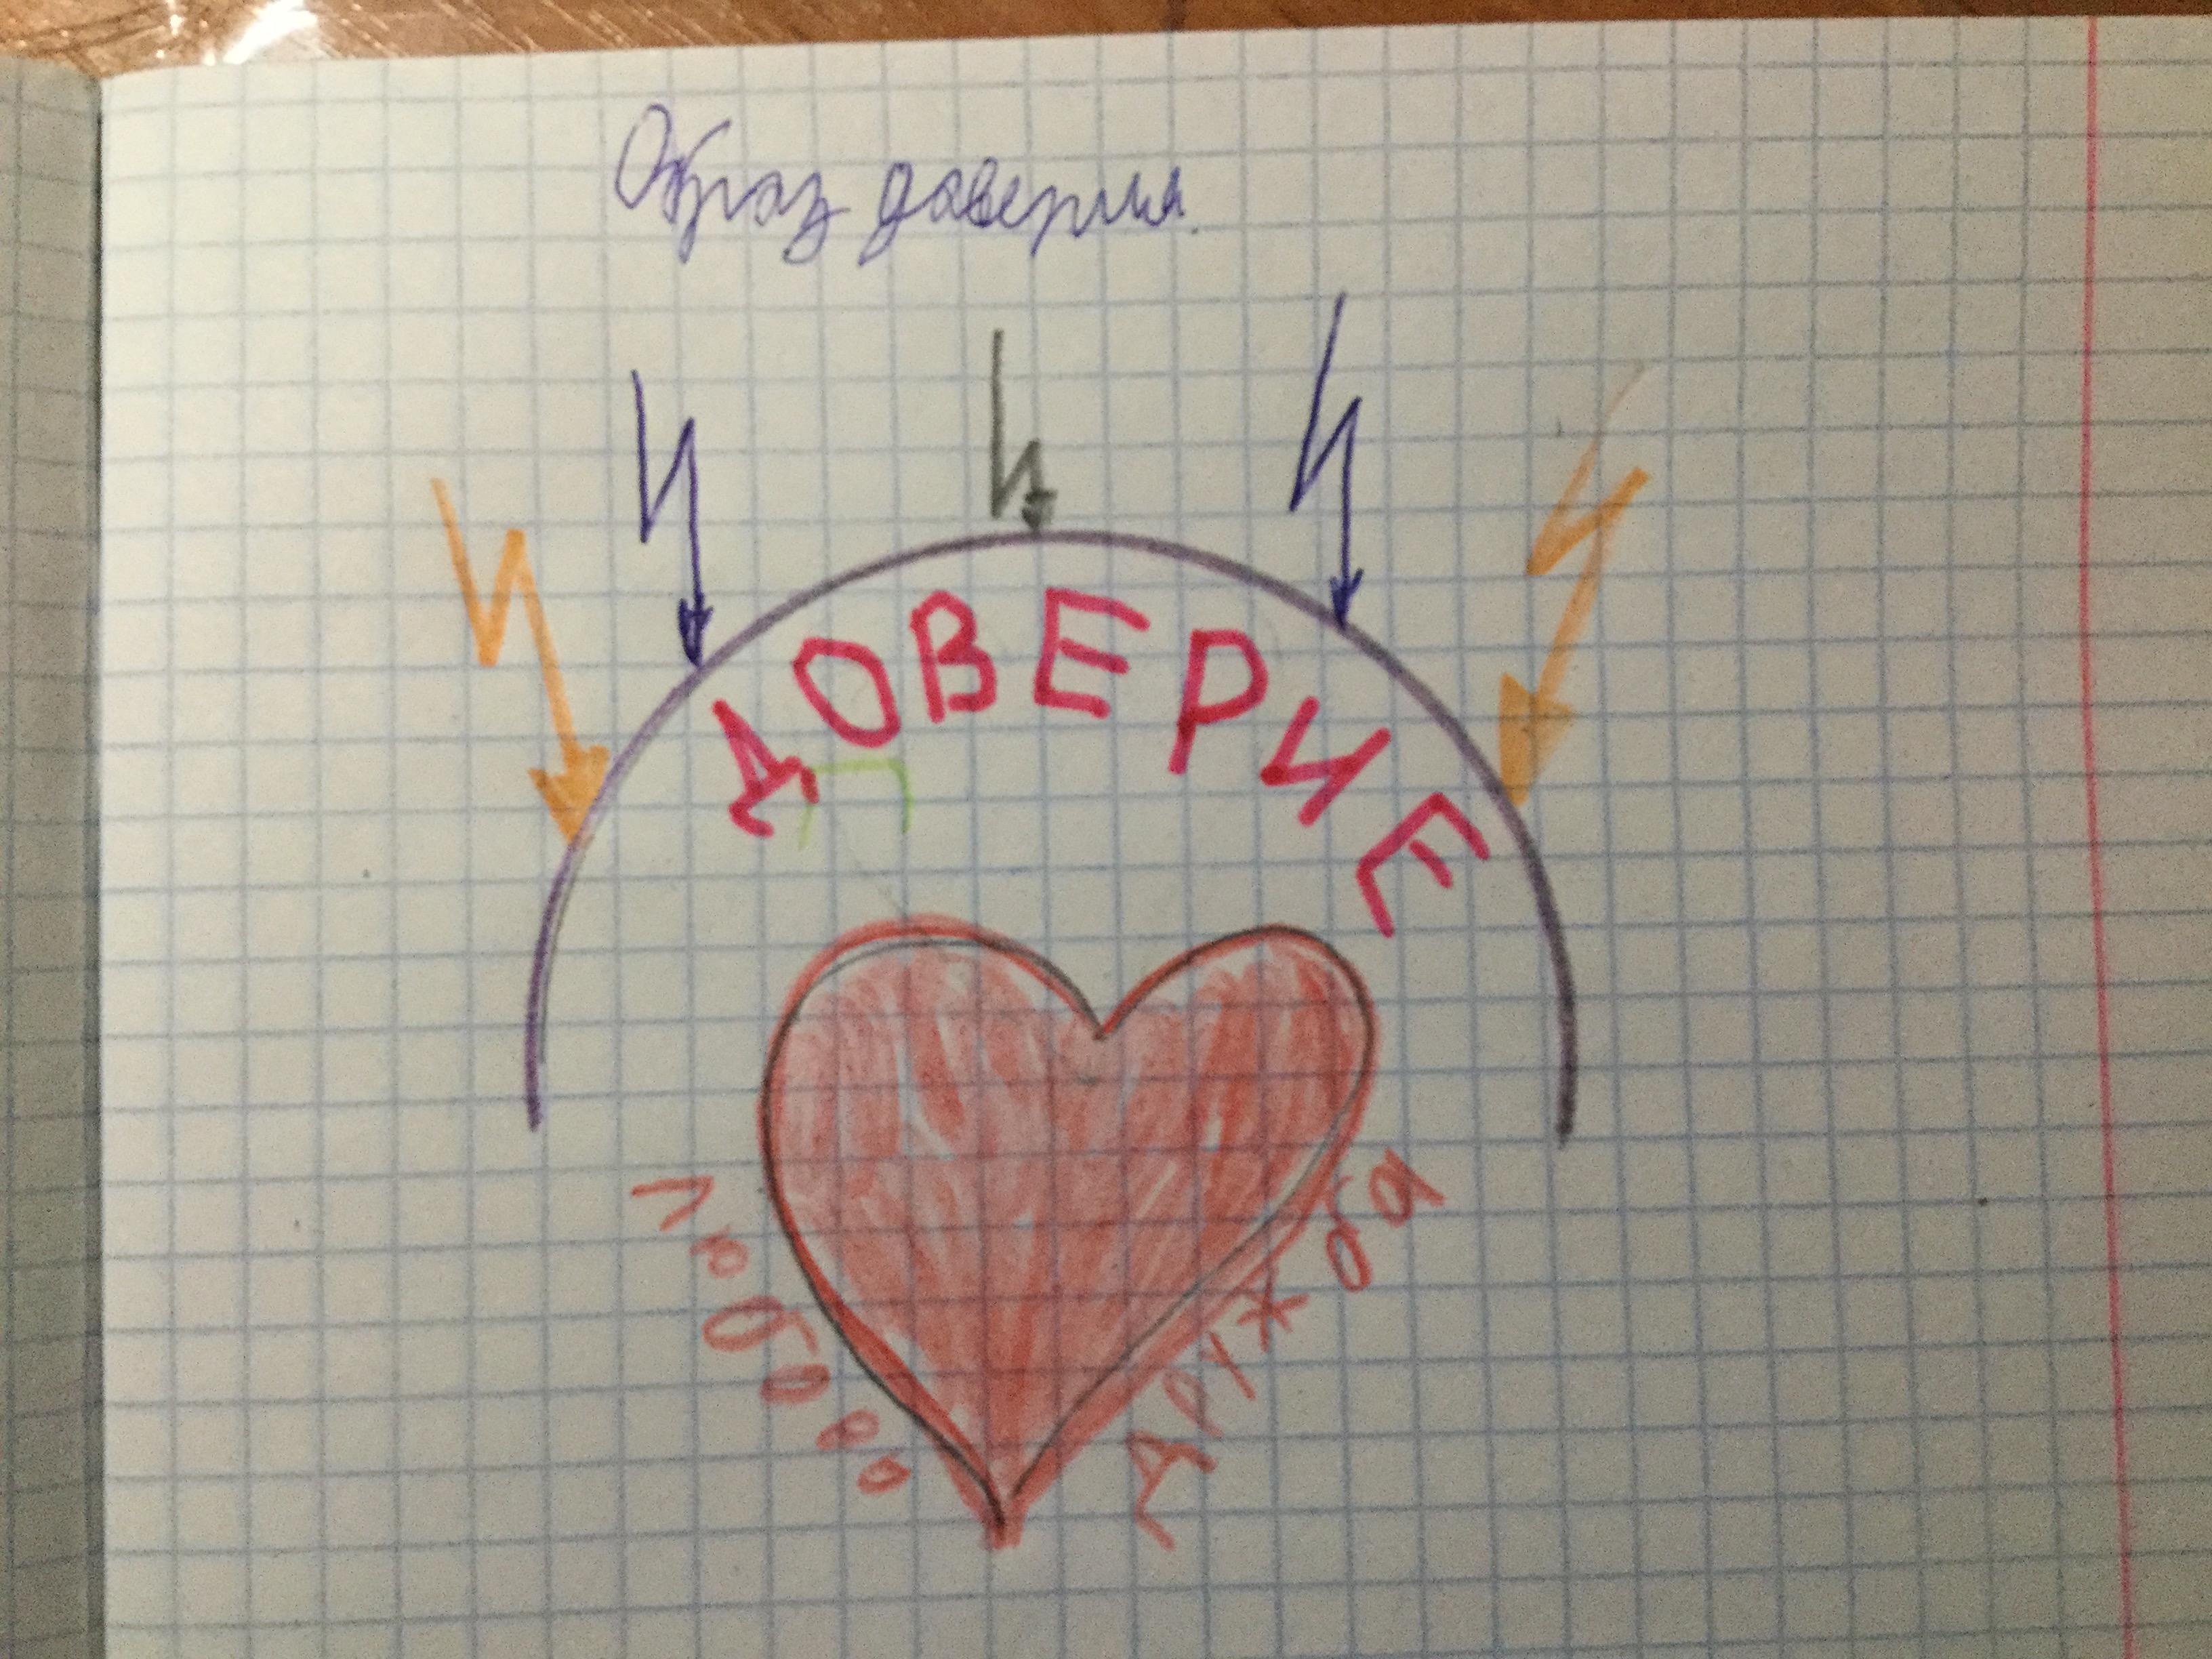 Образ доверия.
ДОВЕРИЕ
Любовь
Дружба